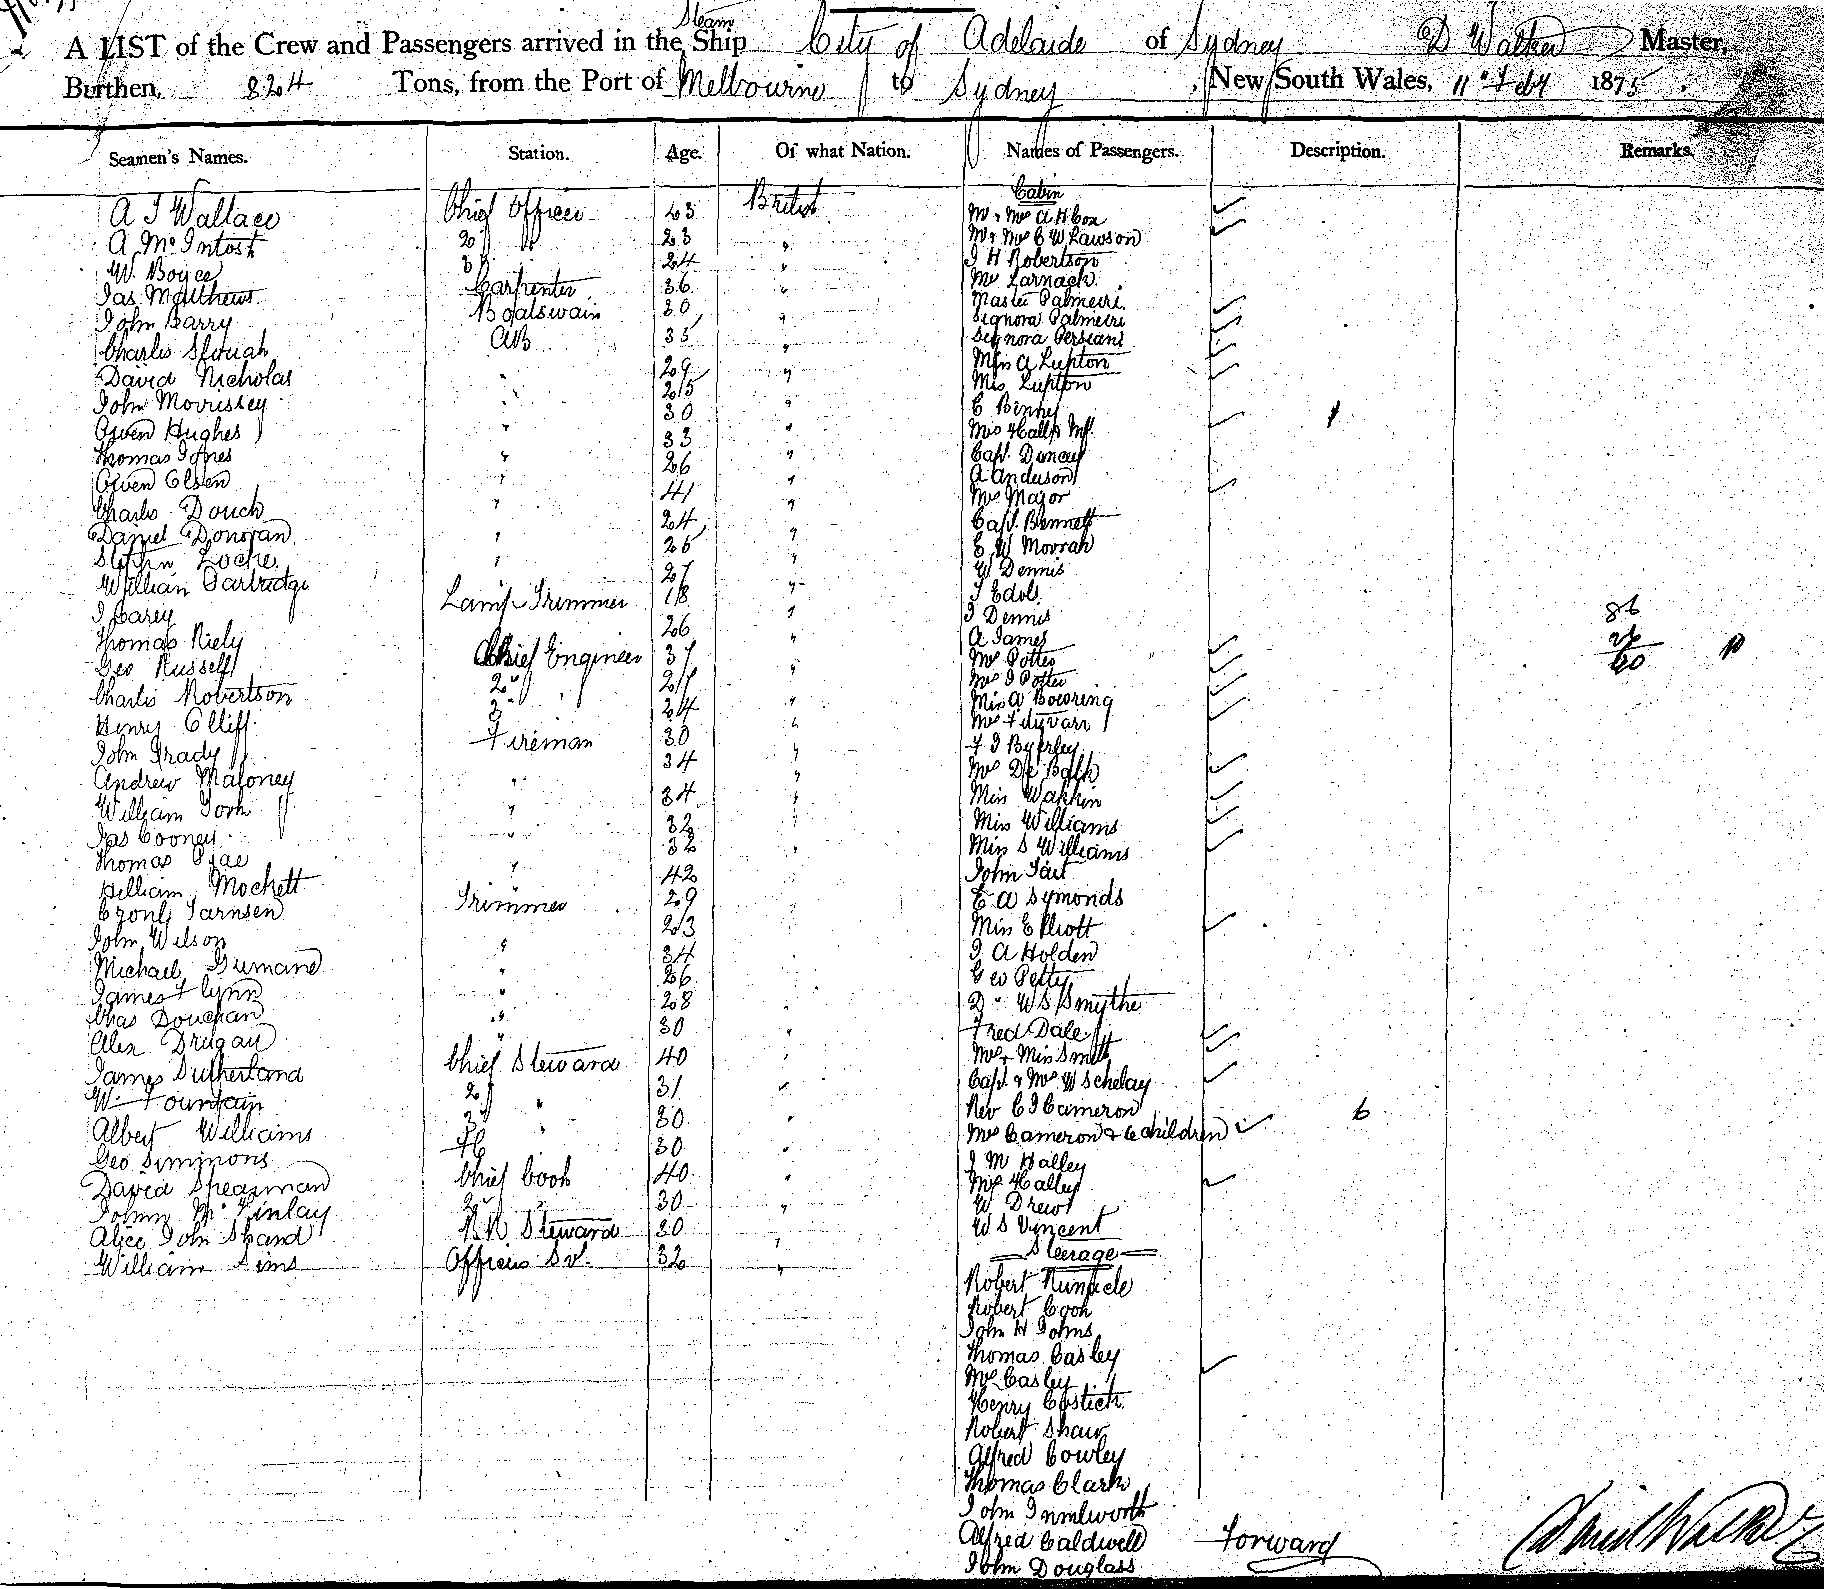 A LIST of the Crew and Passengers arrived in the Steam Ship City of Adelaide of Sydney D Walker Master,
Burthen, 824 Tons, from the Port of Melbourne to Sydney, New South Wales, 11th Feby 1875.
Seamen's Names. Station. Age. Of what Nation. Names of Passengers. Description. Remarks.
Cabin
A J Wallace Chief Officer 23 British Mr & Mrs A H Cox
A McIntosh 2d " 23 " Mr & Mrs C W Lawson
W. Boyce 3d 24 " J H Robertson
Jas Matthews Carpenter 36 " Mr Larnach
John Barry Boatswain 30 " Master Palmeiri
Signora Palmeiri
Charles Slough AB 35 " Signora Persiani
David Nicholas " 29 " Miss A Lupton
John Morrissey " 25 " Miss Lupton
Owen Hughes " 30 " C Binney 1
Thomas Jones " 33 " Mrs Hall &
Owen Olsen " 26 " Capt. Duncan
Charles Douch " 41 " A Anderson
Mrs Major
Daniel Donovan " 24 " Capt. Bennett
Stephen Locke " 25 " E W Moorah
William Partridge 27 " W Dennis
J Carey Lamp Trimmer 18 " T Edols
Thomas Kiely 26 " J Dennis 86
Geo Russell Chief Engineer 37 " A James 26
Mrs Potter 60
Charles Robertson 2d " 27 " Mrs J Potter
Henry Elliff 3 24 " Miss A Bowring
John Grady Fireman 30 " Mrs
Andrew Maloney " 34 " F J Byerley
William York " 34 " Mrs De Balk
Jas Cooney " 32 Miss Watkin
Thomas 32 " Miss Williams
William Mockett " 42 Miss S Williams
Tarnsen Trimmer 29 John Tait
John Wilson 23 E A Symonds
Michael " 34 Miss Elliott
James Flynn " 26 J A Holden
Chas " 28 Geo Petty
Alex Drugan " 30 " Dr W S Smythe
Fred Dale
James Sutherland Chief Steward 40 Mrs & Miss Smith
W. Fountain 2d " 31 " Capt & Mrs W Schelay
Albert Williams 3d " 30 " Rev C J Cameron 6
Geo Simmons 30 " Mrs Cameron & 6 children
David Spearman Chief Cook 40 " J M Halley
John McKinlay 2d 30 " Mrs Halley
Alice John Shand Steward 30 " W Drew
William Sims Officers Sv. 32 " W S Vincent
Steerage
Robert
Robert Cook
John H Johns
Thomas Casley
Mrs Casley
Henry Costick
Robert Shaw
Alfred Cowley
Thomas Clark
John
Alfred Caldwell Forward
John Douglass